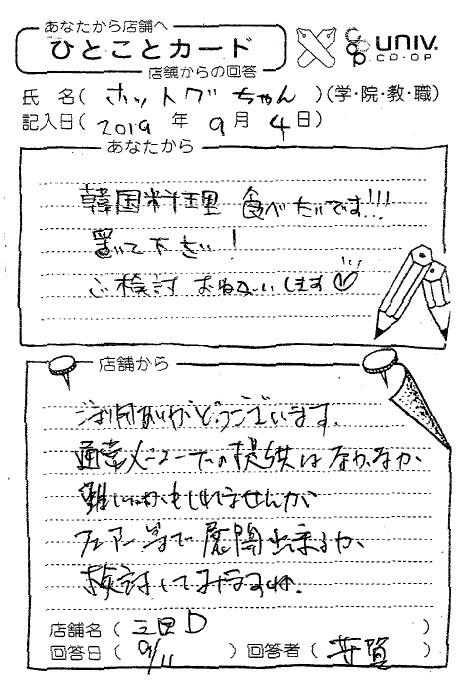 あなたから店舗へ
ひとことカード
店舗からの回答
UNIV.
CO-OP
氏 名( ホットグちゃん )(学・院・教・職)
記入日( 2019 年 9 月 4 日)
あなたから
韓国料理 食べたいです!!!
置いて下さい!
ご検討 おねがいします♡
店舗から
ご利用ありがとうございます。
通常メニューでの提供はなかなか
難しいかもしれませんが、
フェアー等で展開出来るか、
検討してみますね。
店舗名( 三田D )
回答日( 9/11 )回答者( 芳賀 )